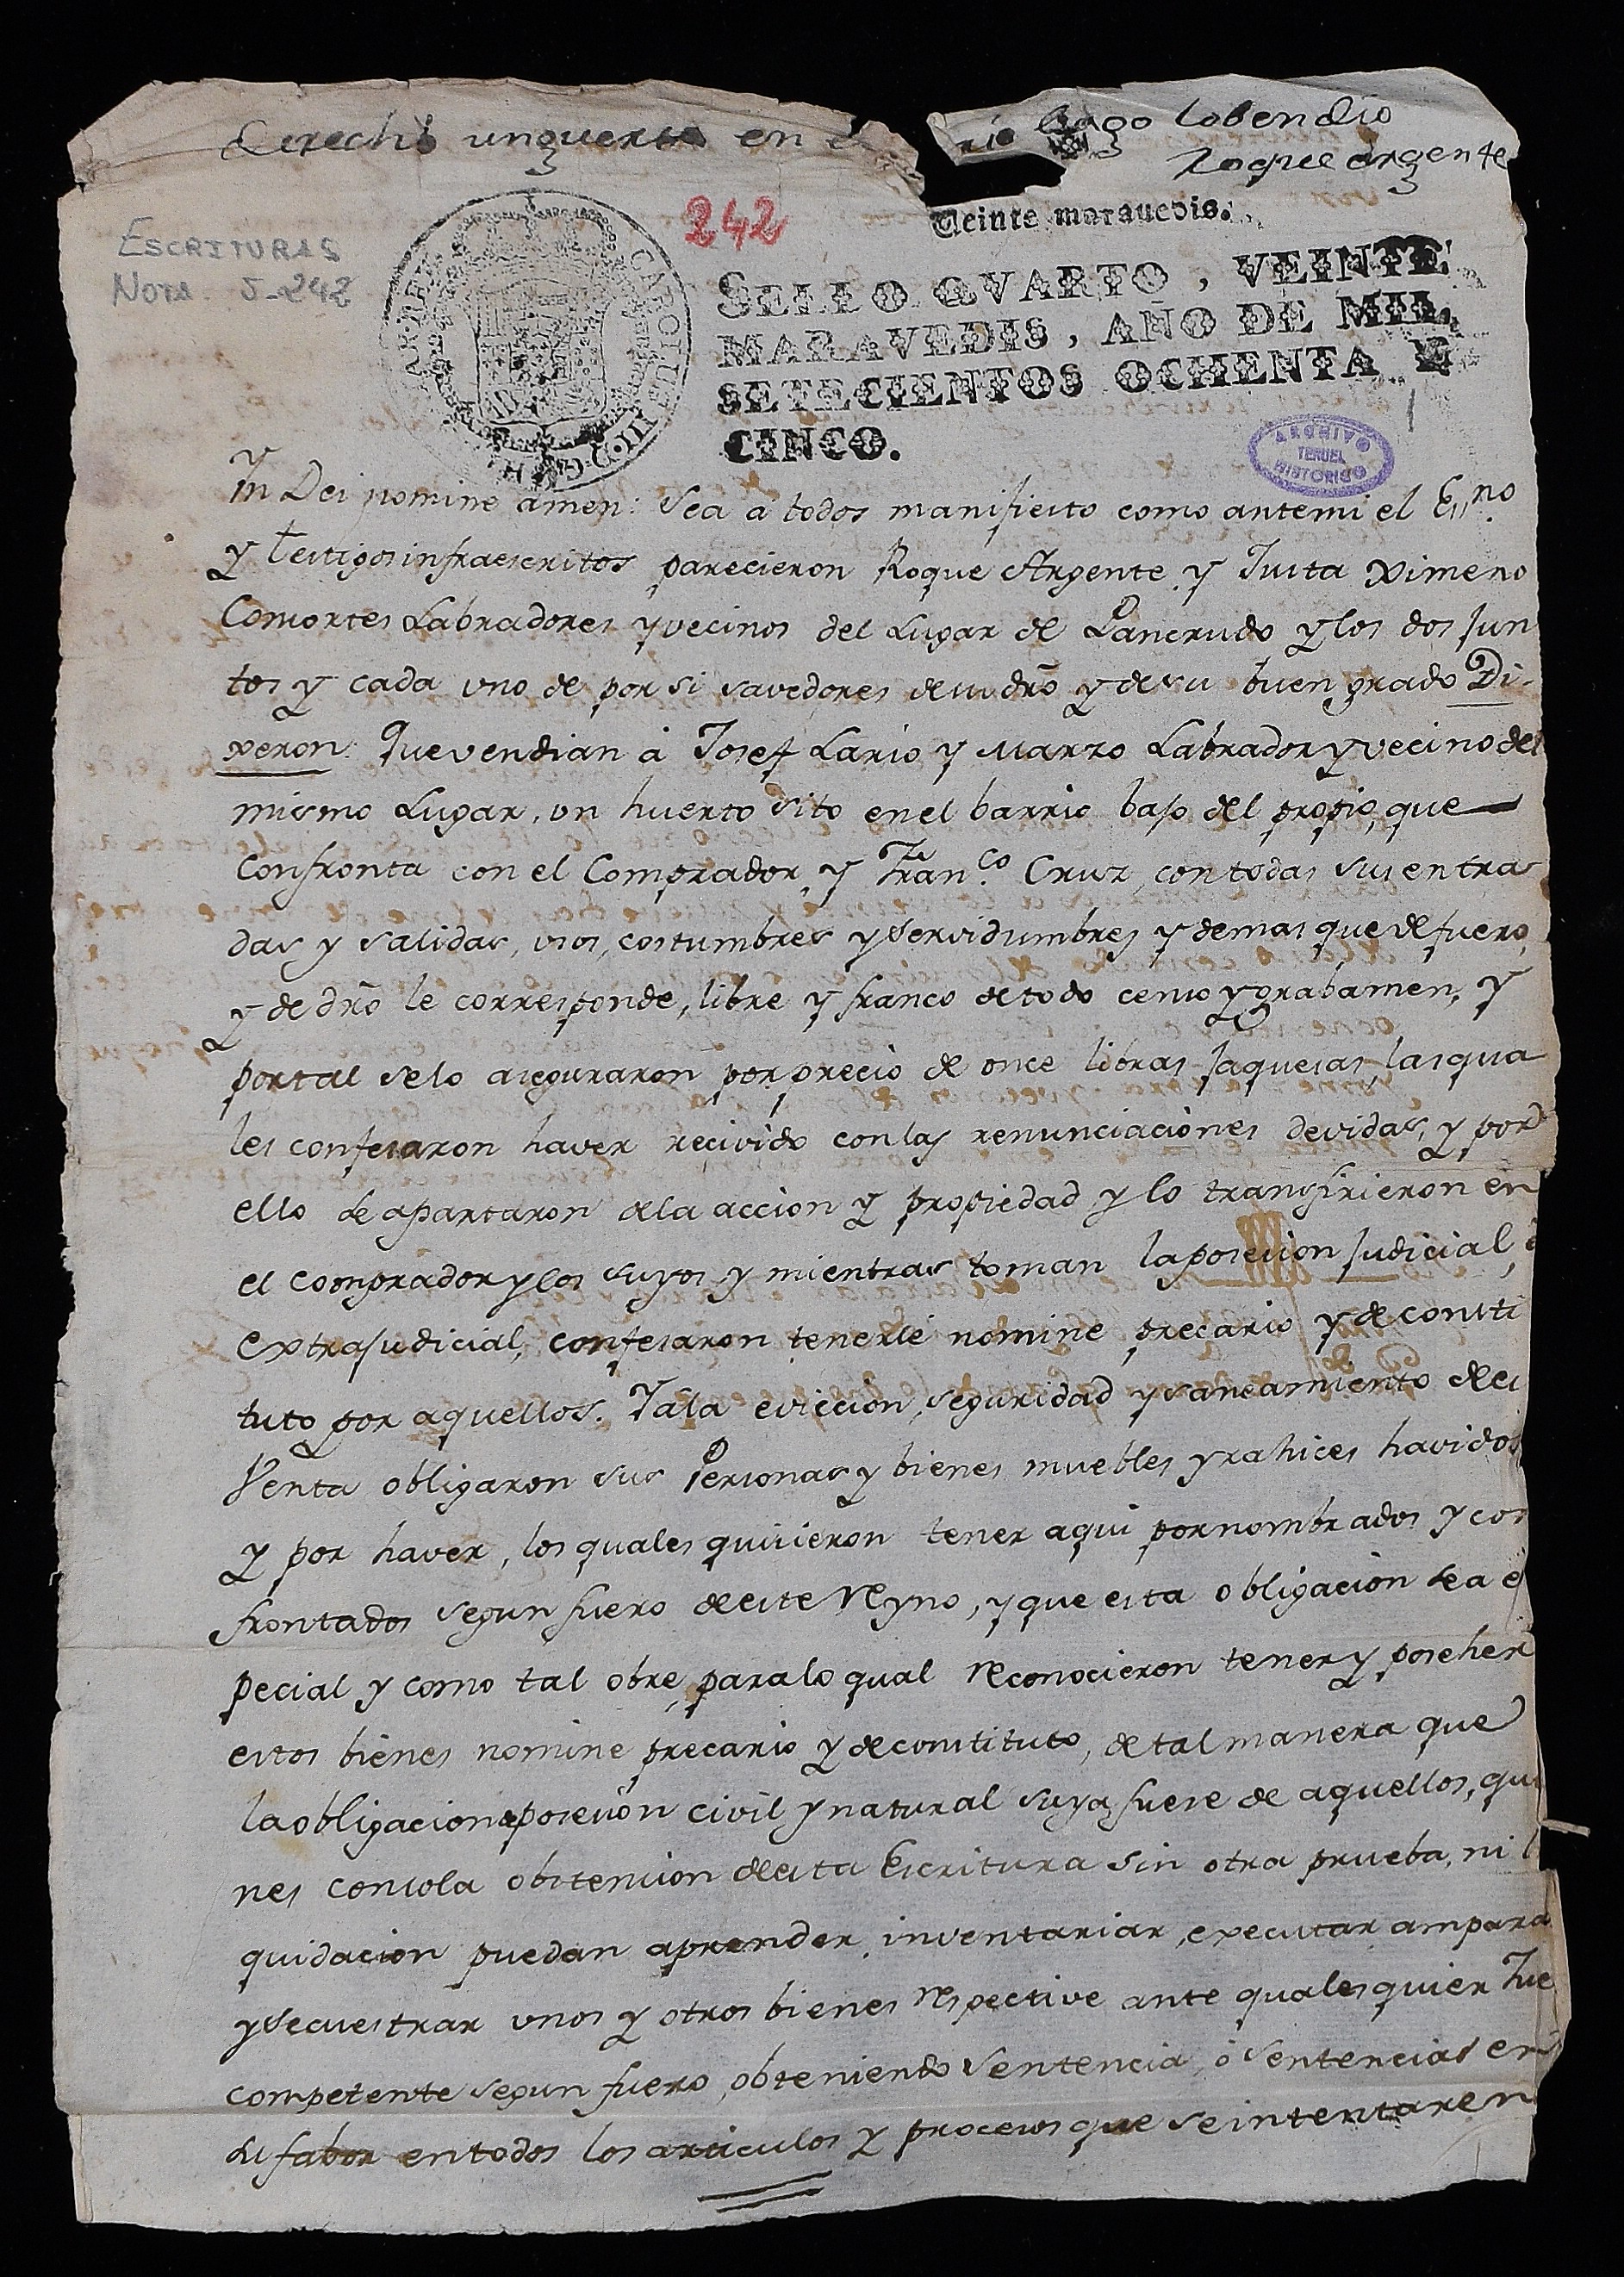 derecho un guerto en el rio bago lo bendio
Roque argente
242
ESCRITURAS
Nota. 5-242
CAROLUS III D G HISPANIAR REX
Veinte marauedis.
SELLO QVARTO, VEINTE
MARAVEDIS, AÑO DE MIL
SETECIENTOS OCHENTA Y
CINCO.
ARCHIVO
TERUEL
HISTORICO
In Dei nomine amen: Sea á todos manifiesto como antemi el Ess.no
y testigos infraescritos parecieron Roque Argente y Justa Ximeno
Consortes Labradores y vecinos del Lugar de Pancrudo y los dos jun
tos y cada uno de por si savedores de su dro y de su buen grado Di-
xeron: Que vendian à Josef Lario y Marzo Labrador y vecino del
mismo Lugar, un huerto sito en el barrio bajo del propio, que
Confronta con el Comprador, y Fran.co Cruz, con todas sus entra
das y salidas, usos, costumbres y servidumbres y demas que de fuero,
y de dro le corresponde, libre y franco de todo censo y grabamen, y
por tal se lo aseguraron por precio de once libras jaquesas, las qua
les confesaron haver recivido con las renunciaciones devidas, y por
ello se apartaron de la accion y propiedad y lo transfirieron en
el comprador y los suyos y mientras toman la posesion judicial, ó
extrajudicial, confesaron tenerlé nomine precario y de consti
tuto por aquellos. Y á la eviccion, seguridad y saneamiento de es
Venta obligaron sus Personas y bienes muebles y rahices havidos
y por haver, los quales quisieron tener aqui por nombrados y con
frontados segun fuero de este Reyno, y que esta obligacion sea es
pecial y como tal obre, para lo qual reconocieron tener y poseher
estos bienes nomine precario y de constituto, de tal manera que
la obligacion posesion civil y natural suya fuese de aquellos, qui
nes con sola obstension de esta Escritura sin otra prueba, ni li
quidacion puedan aprender, inventariar, executar, ampara
y secuestrar unos y otros bienes respective ante qualesquier Jue
competente segun fuero, obteniendo sentencia, ó sentencias en
su fabor en todos los articulos y procesos que se intentaren